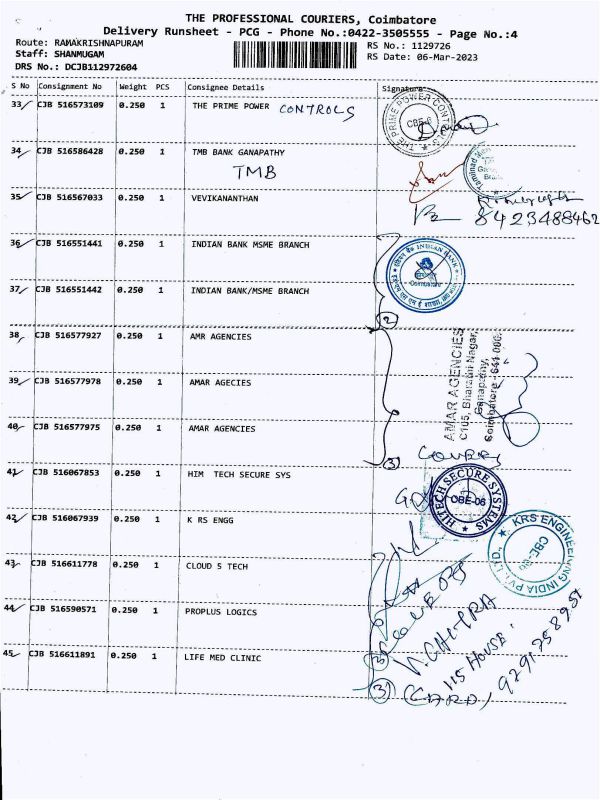 THE PROFESSIONAL COURIERS, Coimbatore
Delivery Runsheet - PCG - Phone No.:0422-3505555 - Page No.:4
Route: RAMAKRISHNAPURAM RS No.: 1129726
Staff: SHANMUGAM RS Date: 06-Mar-2023
DRS No.: DCJB112972604
S No Consignment No Weight PCS Consignee Details Signature
33 CJB 516573109 0.250 1 THE PRIME POWER CONTROLS
THE PRIME POWER CONTROLS CBE-6
34 CJB 516586428 0.250 1 TMB BANK GANAPATHY
TMB
35 CJB 516567033 0.250 1 VEVIKANANTHAN
8423488462
36 CJB 516551441 0.250 1 INDIAN BANK MSME BRANCH
INDIAN BANK Coimbatore
37 CJB 516551442 0.250 1 INDIAN BANK/MSME BRANCH
2
38 CJB 516577927 0.250 1 AMR AGENCIES
AMAR AGENCIES
C105, Bharathi Nagar,
Ganapathy,
Coimbatore
39 CJB 516577978 0.250 1 AMAR AGECIES
40 CJB 516577975 0.250 1 AMAR AGENCIES
3
41 CJB 516067853 0.250 1 HIM TECH SECURE SYS
HITECH SECURE SYSTEMS CBE-06
42 CJB 516067939 0.250 1 K RS ENGG
KRS ENGINEERING INDIA PVT. LTD.,
43 CJB 516611778 0.250 1 CLOUD 5 TECH
44 CJB 516590571 0.250 1 PROPLUS LOGICS
45 CJB 516611891 0.250 1 LIFE MED CLINIC
115 HOUSE
3